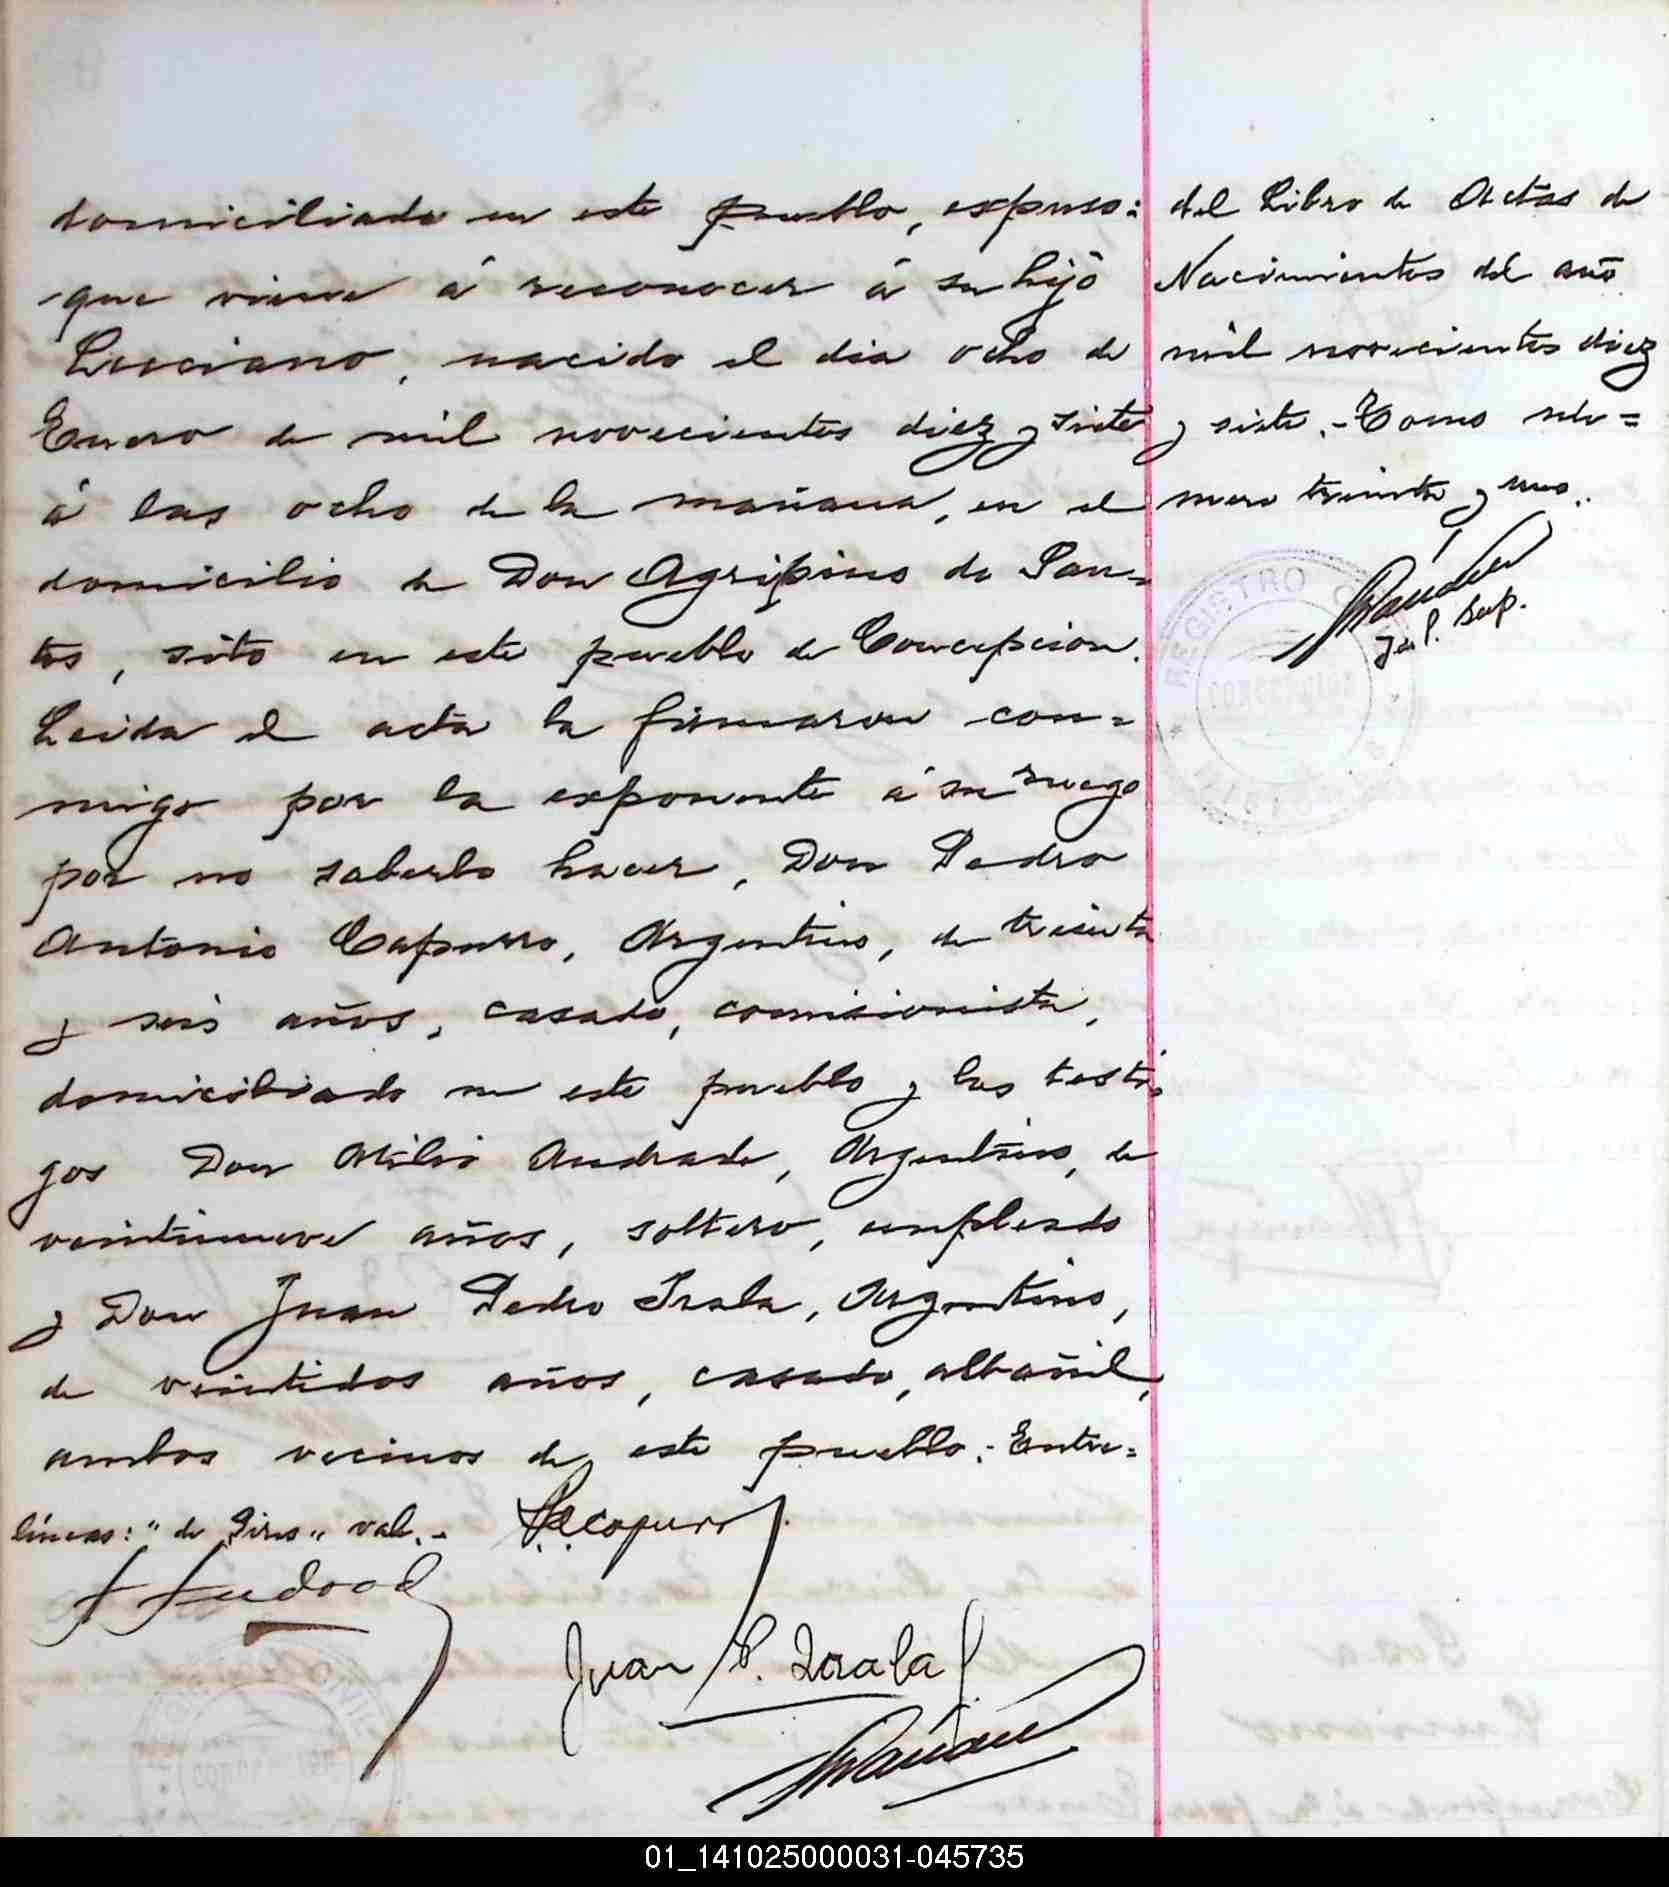 domiciliada en este pueblo, expuso:
que viene á reconocer á su hijo
Luciano, nacido el dia ocho de
Enero de mil novecientos diez y siete
á las ocho de la mañana, en el
domicilio de Don Agripino de San=
tos, sito en este pueblo de Concepcion.
Leida el acta la firmaron con=
migo por la exponente á su ruego
por no saberlo hacer, Don Pedro
Antonio Capurro, Argentino, de treinta
y seis años, casado, comisionista,
domiciliado en este pueblo y los testi
gos Don Atilio Andrade, Argentino, de
veintinueve años, soltero, empleado
y Don Juan Pedro Irala, Argentino,
de veintidos años, casado, albañil,
ambos vecinos de este pueblo.- Entre=
líneas: " de " vale.-
Juan P. Irala
del Libro de Actas de
Nacimientos del año
mil novecientos diez
y siete.- Tomo nú=
mero treinta y uno.
REGISTRO
CONCEPCION
01_141025000031-045735